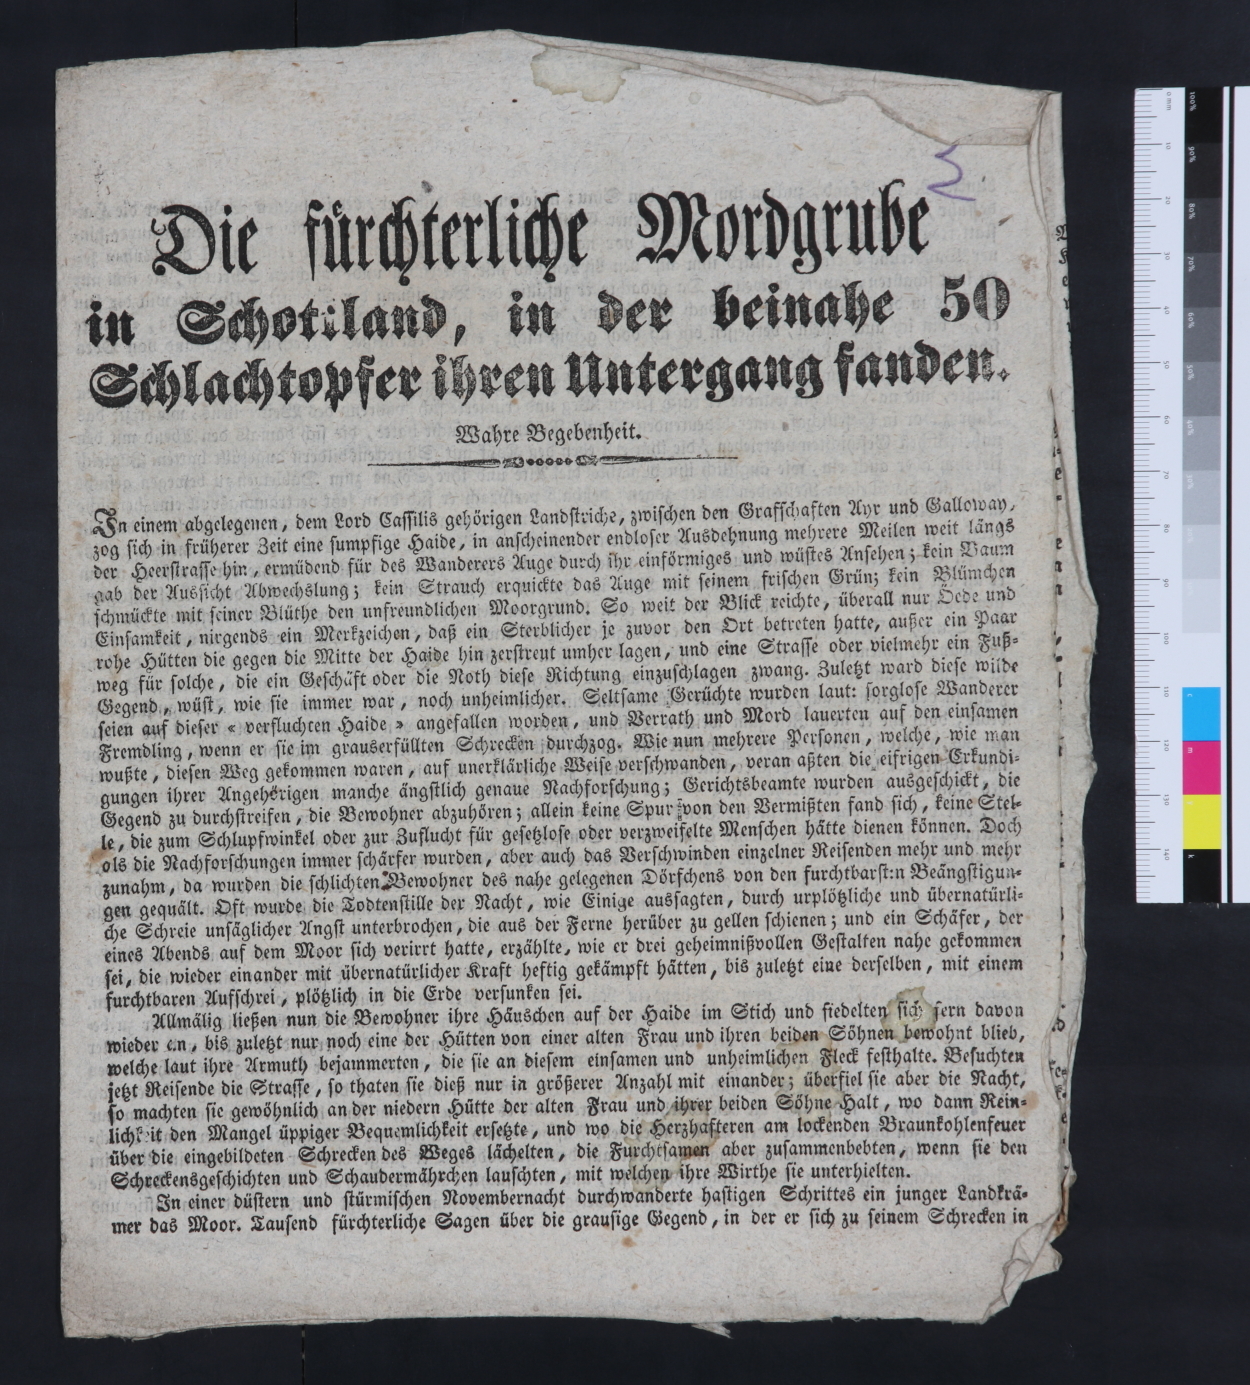 Die fürchterliche Mordgrube
in Schottland, in der beinahe 50
Schlachtopfer ihren Untergang fanden.
Wahre Begebenheit.
In einem abgelegenen, dem Lord Cassilis gehörigen Landstriche, zwischen den Grafschaften Ayr und Galloway,
zog sich in früherer Zeit eine sumpfige Haide, in anscheinender endloser Ausdehnung mehrere Meilen weit längs
der Heerstrasse hin, ermüdend für des Wanderers Auge durch ihr einförmiges und wüstes Ansehen; kein Baum
gab der Aussicht Abwechslung; kein Strauch erquickte das Auge mit seinem frischen Grün; kein Blümchen
schmückte mit seiner Blüthe den unfreundlichen Moorgrund. So weit der Blick reichte, überall nur Öede und
Einsamkeit, nirgends ein Merkzeichen, daß ein Sterblicher je zuvor den Ort betreten hatte, außer ein Paar
rohe Hütten die gegen die Mitte der Haide hin zerstreut umher lagen, und eine Strasse oder vielmehr ein Fuß-
weg für solche, die ein Geschäft oder die Noth diese Richtung einzuschlagen zwang. Zuletzt ward diese wilde
Gegend, wüst, wie sie immer war, noch unheimlicher. Seltsame Gerüchte wurden laut: sorglose Wanderer
seien auf dieser « verfluchten Haide » angefallen worden, und Verrath und Mord lauerten auf den einsamen
Fremdling, wenn er sie im grauserfüllten Schrecken durchzog. Wie nun mehrere Personen, welche, wie man
wußte, diesen Weg gekommen waren, auf unerklärliche Weise verschwanden, veran aßten die eifrigen Erkundi-
gungen ihrer Angehörigen manche ängstlich genaue Nachforschung; Gerichtsbeamte wurden ausgeschickt, die
Gegend zu durchstreifen, die Bewohner abzuhören; allein keine Spur von den Vermißten fand sich, keine Stel-
le, die zum Schlupfwinkel oder zur Zuflucht für gesetzlose oder verzweifelte Menschen hätte dienen können. Doch
als die Nachforschungen immer schärfer wurden, aber auch das Verschwinden einzelner Reisenden mehr und mehr
zunahm, da wurden die schlichten Bewohner des nahe gelegenen Dörfchens von den furchtbarsten Beängstigun-
gen gequält. Oft wurde die Todtenstille der Nacht, wie Einige aussagten, durch urplötzliche und übernatürli-
che Schreie unsäglicher Angst unterbrochen, die aus der Ferne herüber zu gellen schienen; und ein Schäfer, der
eines Abends auf dem Moor sich verirrt hatte, erzählte, wie er drei geheimnißvollen Gestalten nahe gekommen
sei, die wieder einander mit übernatürlicher Kraft heftig gekämpft hätten, bis zuletzt eine derselben, mit einem
furchtbaren Aufschrei, plötzlich in die Erde versunken sei.
Allmälig ließen nun die Bewohner ihre Häuschen auf der Haide im Stich und siedelten sich fern davon
wieder e.n, bis zuletzt nur noch eine der Hütten von einer alten Frau und ihren beiden Söhnen bewohnt blieb,
welche laut ihre Armuth bejammerten, die sie an diesem einsamen und unheimlichen Fleck festhalte. Besuchten
jetzt Reisende die Strasse, so thaten sie dieß nur in größerer Anzahl mit einander; überfiel sie aber die Nacht,
so machten sie gewöhnlich an der niedern Hütte der alten Frau und ihrer beiden Söhne Halt, wo dann Rein-
lichkeit den Mangel üppiger Bequemlichkeit ersetzte, und wo die Herzhafteren am lockenden Braunkohlenfeuer
über die eingebildeten Schrecken des Weges lächelten, die Furchtsamen aber zusammenbebten, wenn sie den
Schreckensgeschichten und Schaudermährchen lauschten, mit welchen ihre Wirthe sie unterhielten.
In einer düstern und stürmischen Novembernacht durchwanderte hastigen Schrittes ein junger Landkrä-
mer das Moor. Tausend fürchterliche Sagen über die grausige Gegend, in der er sich zu seinem Schrecken in